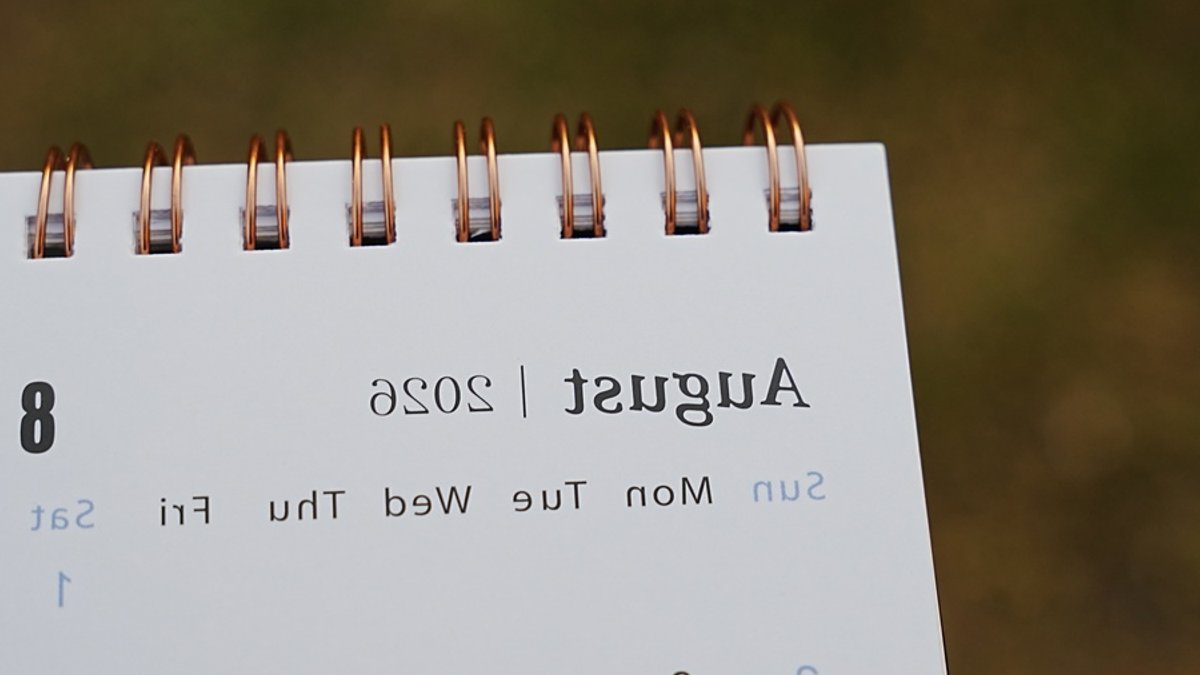 August | 2026
8
Sun Mon Tue Wed Thu Fri Sat
1